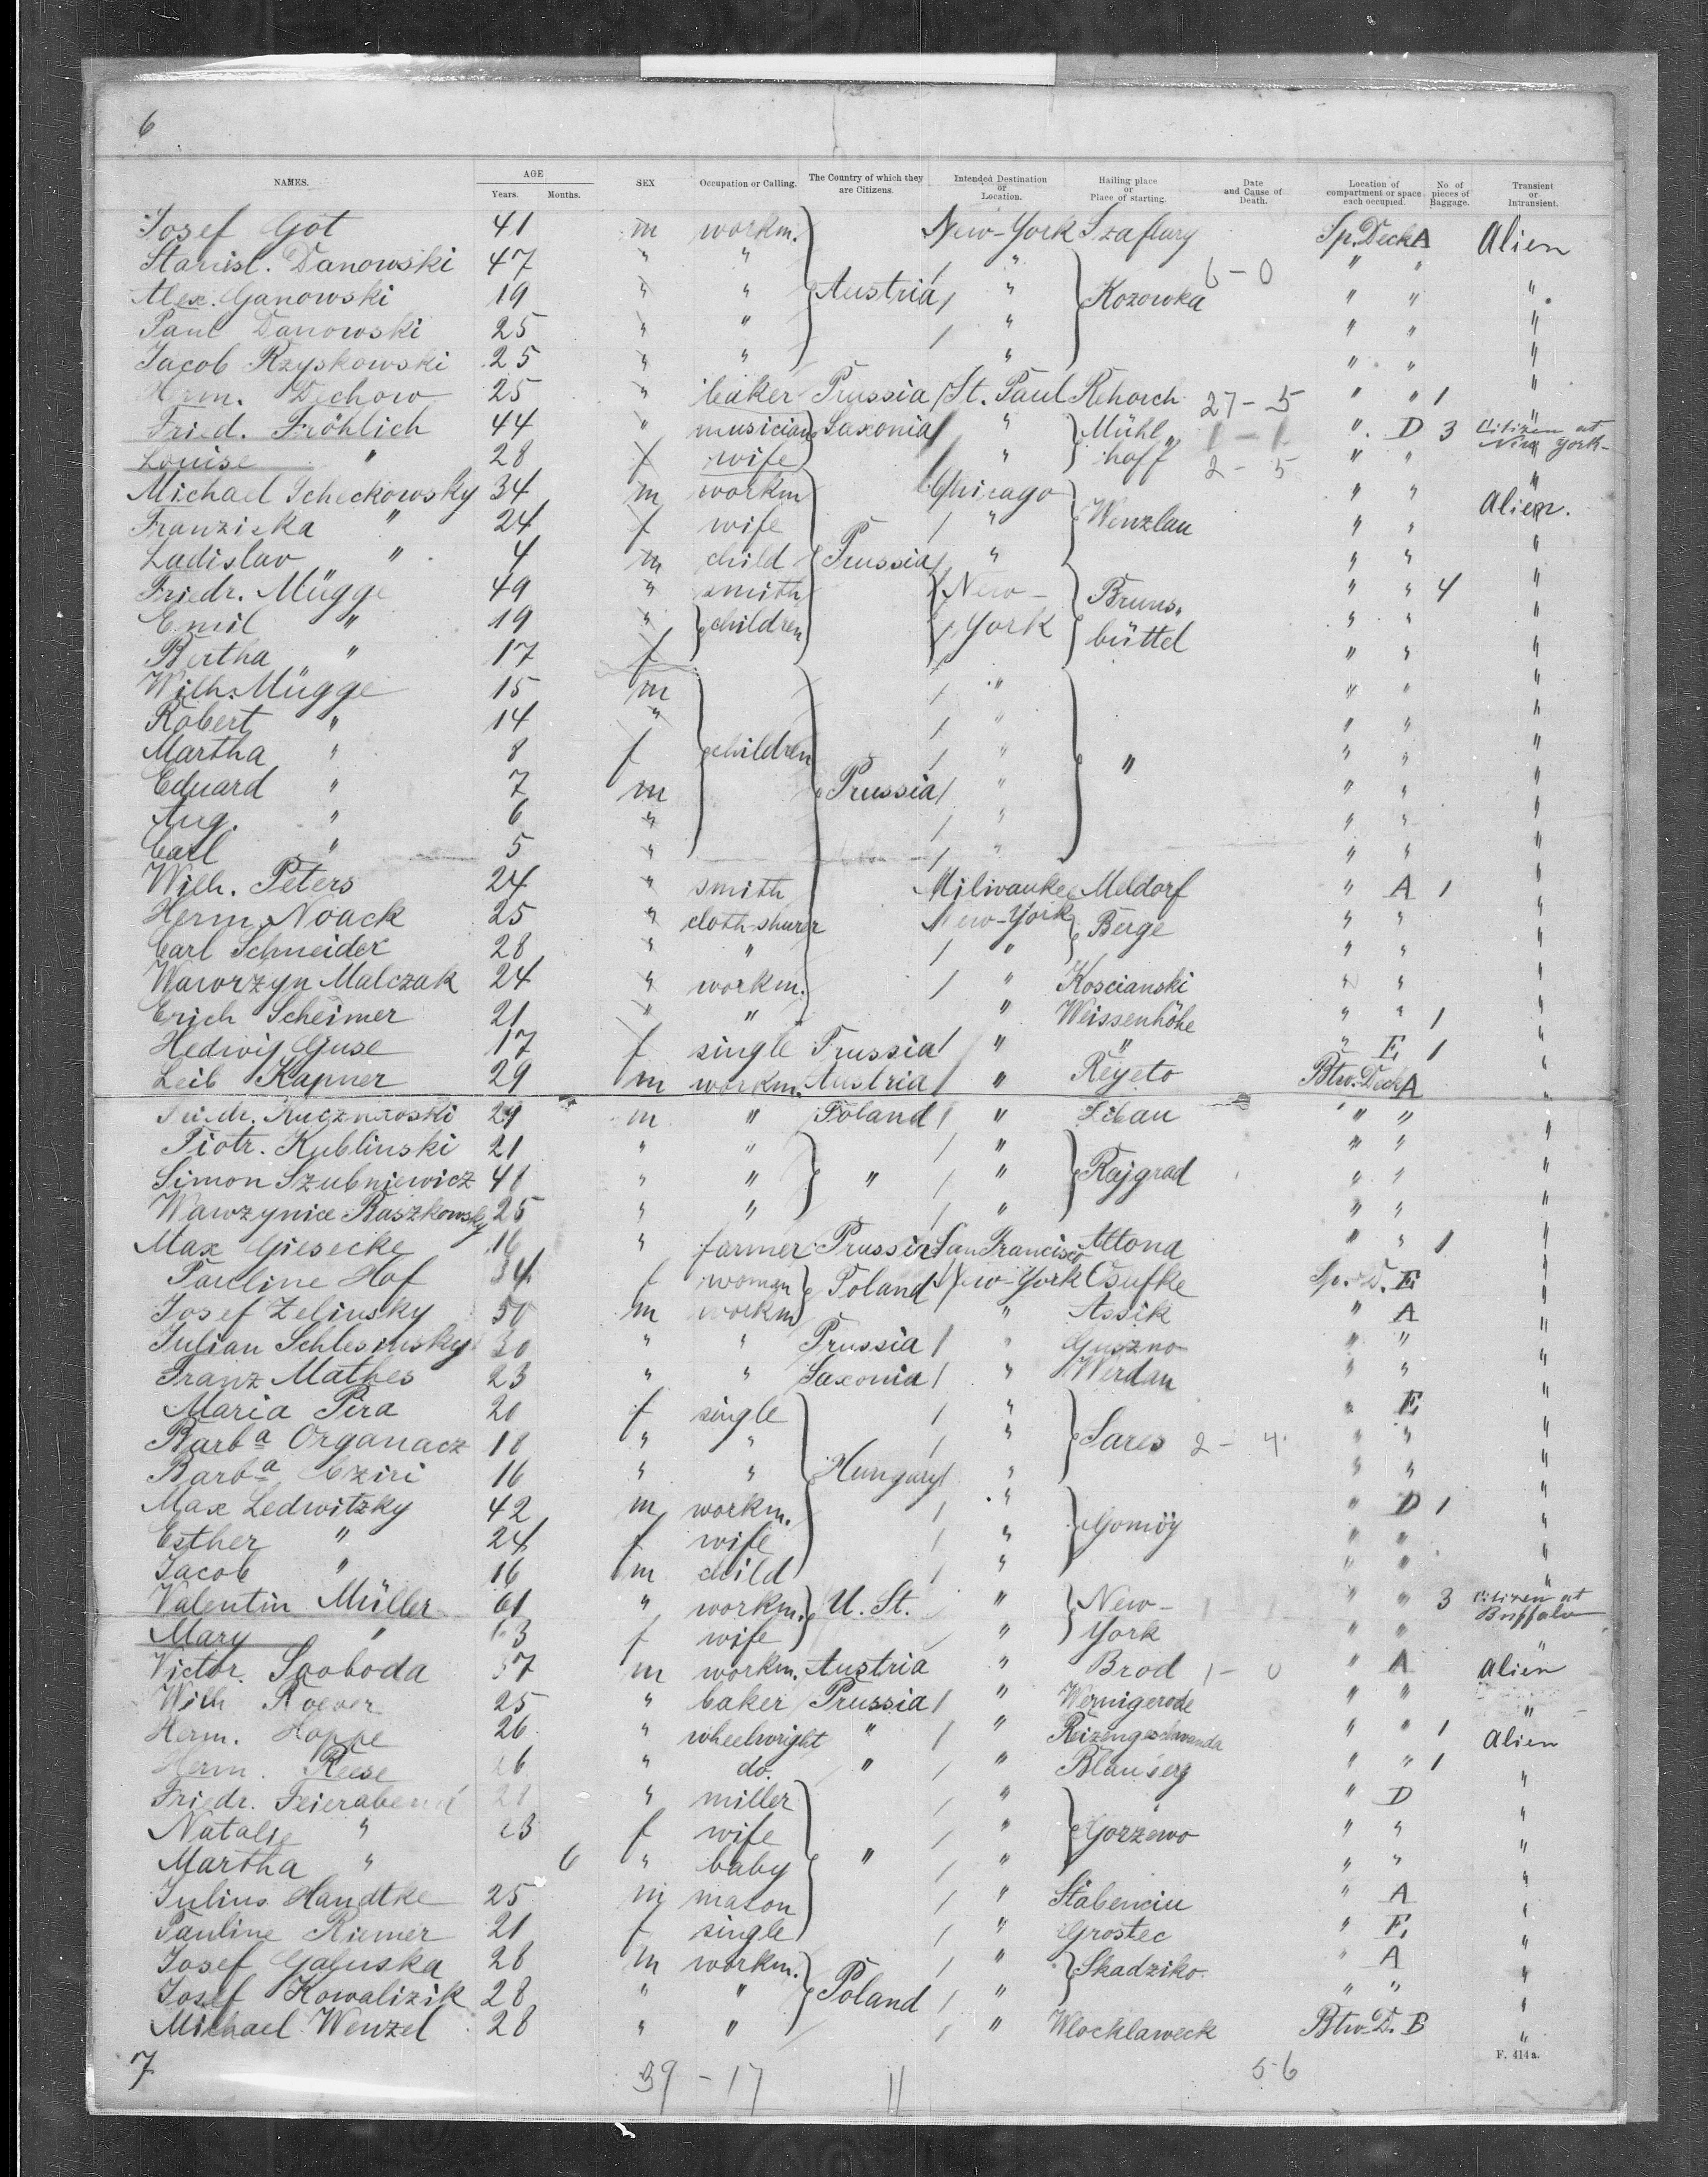 6
NAMES. AGE Years. Months. SEX Occupation or Calling. The Country of which they are Citizens. Intended Destination or Location. Hailing place or Place of starting. Date and Cause of Death. Location of compartment or space each occupied. No of pieces of Baggage. Transient or Intransient.
Josef Got 41 m workm. New-York Szaflary Sp. Deck A Alien
Stanisl. Danowski 47 " " " 6-0 " " "
Alex. Ganowski 19 " " Austria " Kozowka " " "
Paul Danowski 25 " " " " " "
Jacob Rzyskowski 25 " " " " " "
Herm. Dechow 25 " baker Prussia St. Paul Rehorch 27-5 " " 1 "
Fried. Fröhlich 44 " musician Saxonia " Mühl 1-1 " D 3 Citizen at New York
Louise " 28 f wife " hoff 2-5 " " "
Michael Scheckowsky 34 m workm Chicago " " Alien.
Franziska " 24 f wife " Wenzlau " " "
Ladislav " 4 m child Prussia " " " "
Friedr. Mügge 49 " smith New- Bruns. " " 4 "
Emil " 19 " children York büttel " " "
Bertha " 17 f " " "
Wilh. Mügge 15 m " " " "
Robert " 14 " " " " "
Martha " 8 f children " " " " "
Eduard " 7 m Prussia " " " "
Aug. " 6 " " " " "
Carl " 5 " " " " "
Wilh. Peters 24 " smith Milwaukee Meldorf " A 1 "
Herm. Noack 25 " cloth-shurer New-York Berge " " "
Carl Schneider 28 " " " " " "
Wawrzyn Malczak 24 " workm. " Koscianski " " "
Erich Scheimer 21 " " " Weissenhöhe " " 1 "
Hedwig Guse 17 f single Prussia " " " E 1 "
Leib Kapner 29 m workm. Austria " Reyeto Btw. Deck A "
m " Poland " Libau " " "
Piotr. Kublinski 21 " " " " " "
Simon Szubniewicz 41 " " " " Rajgrad " " "
Wawzynice Raszkowsky 25 " " " " " "
Max Giesecke 16 " farmer Prussia San Francisco Altona " " 1 "
Pauline Hof 34 f woman Poland New-York Csufke Sp. D. E "
Josef Zelinsky 50 m workm " Assik " A "
Julian Schlesinsky 30 " " Prussia " Guszno " " "
Franz Mathes 23 " " Saxonia " Werdau " " "
Maria Pira 20 f single " " E "
Barba Organacz 18 " " " Sares 2-4 " " "
Barba Cziri 16 " " Hungary " " " "
Max Ledwitzky 42 m workm. " " D 1 "
Esther " 24 f wife " Gomöy " " "
Jacob " 16 m child " " " "
Valentin Müller 61 " workm. U. St. " New- " " 3 Citizen at Buffalo
Mary " 63 f wife " York " "
Victor Svoboda 37 m workm. Austria " Brod 1-0 " A Alien
Wilh Roever 25 " baker Prussia " Wernigerode " " "
Herm. Hoppe 26 " wheelwright " " " " 1 Alien
Herm. Reese 26 " do. " " " " 1 "
Friedr. Feierabend " miller " " D "
Natalie " 23 f wife " Gorzewo " " "
Martha " 6 " baby " " " " "
Julius Handtke 25 m mason " Stabenciu " A "
Pauline Riemer 21 f single " Grostec " E "
Josef Galuska 28 m workm. " Skadziko " A "
Josef Kowalizik 28 " " Poland " " " "
Michael Wenzel 28 " " " Wlocklaweck Btw. D. B "
F. 414 a.
7 39-17 11 56